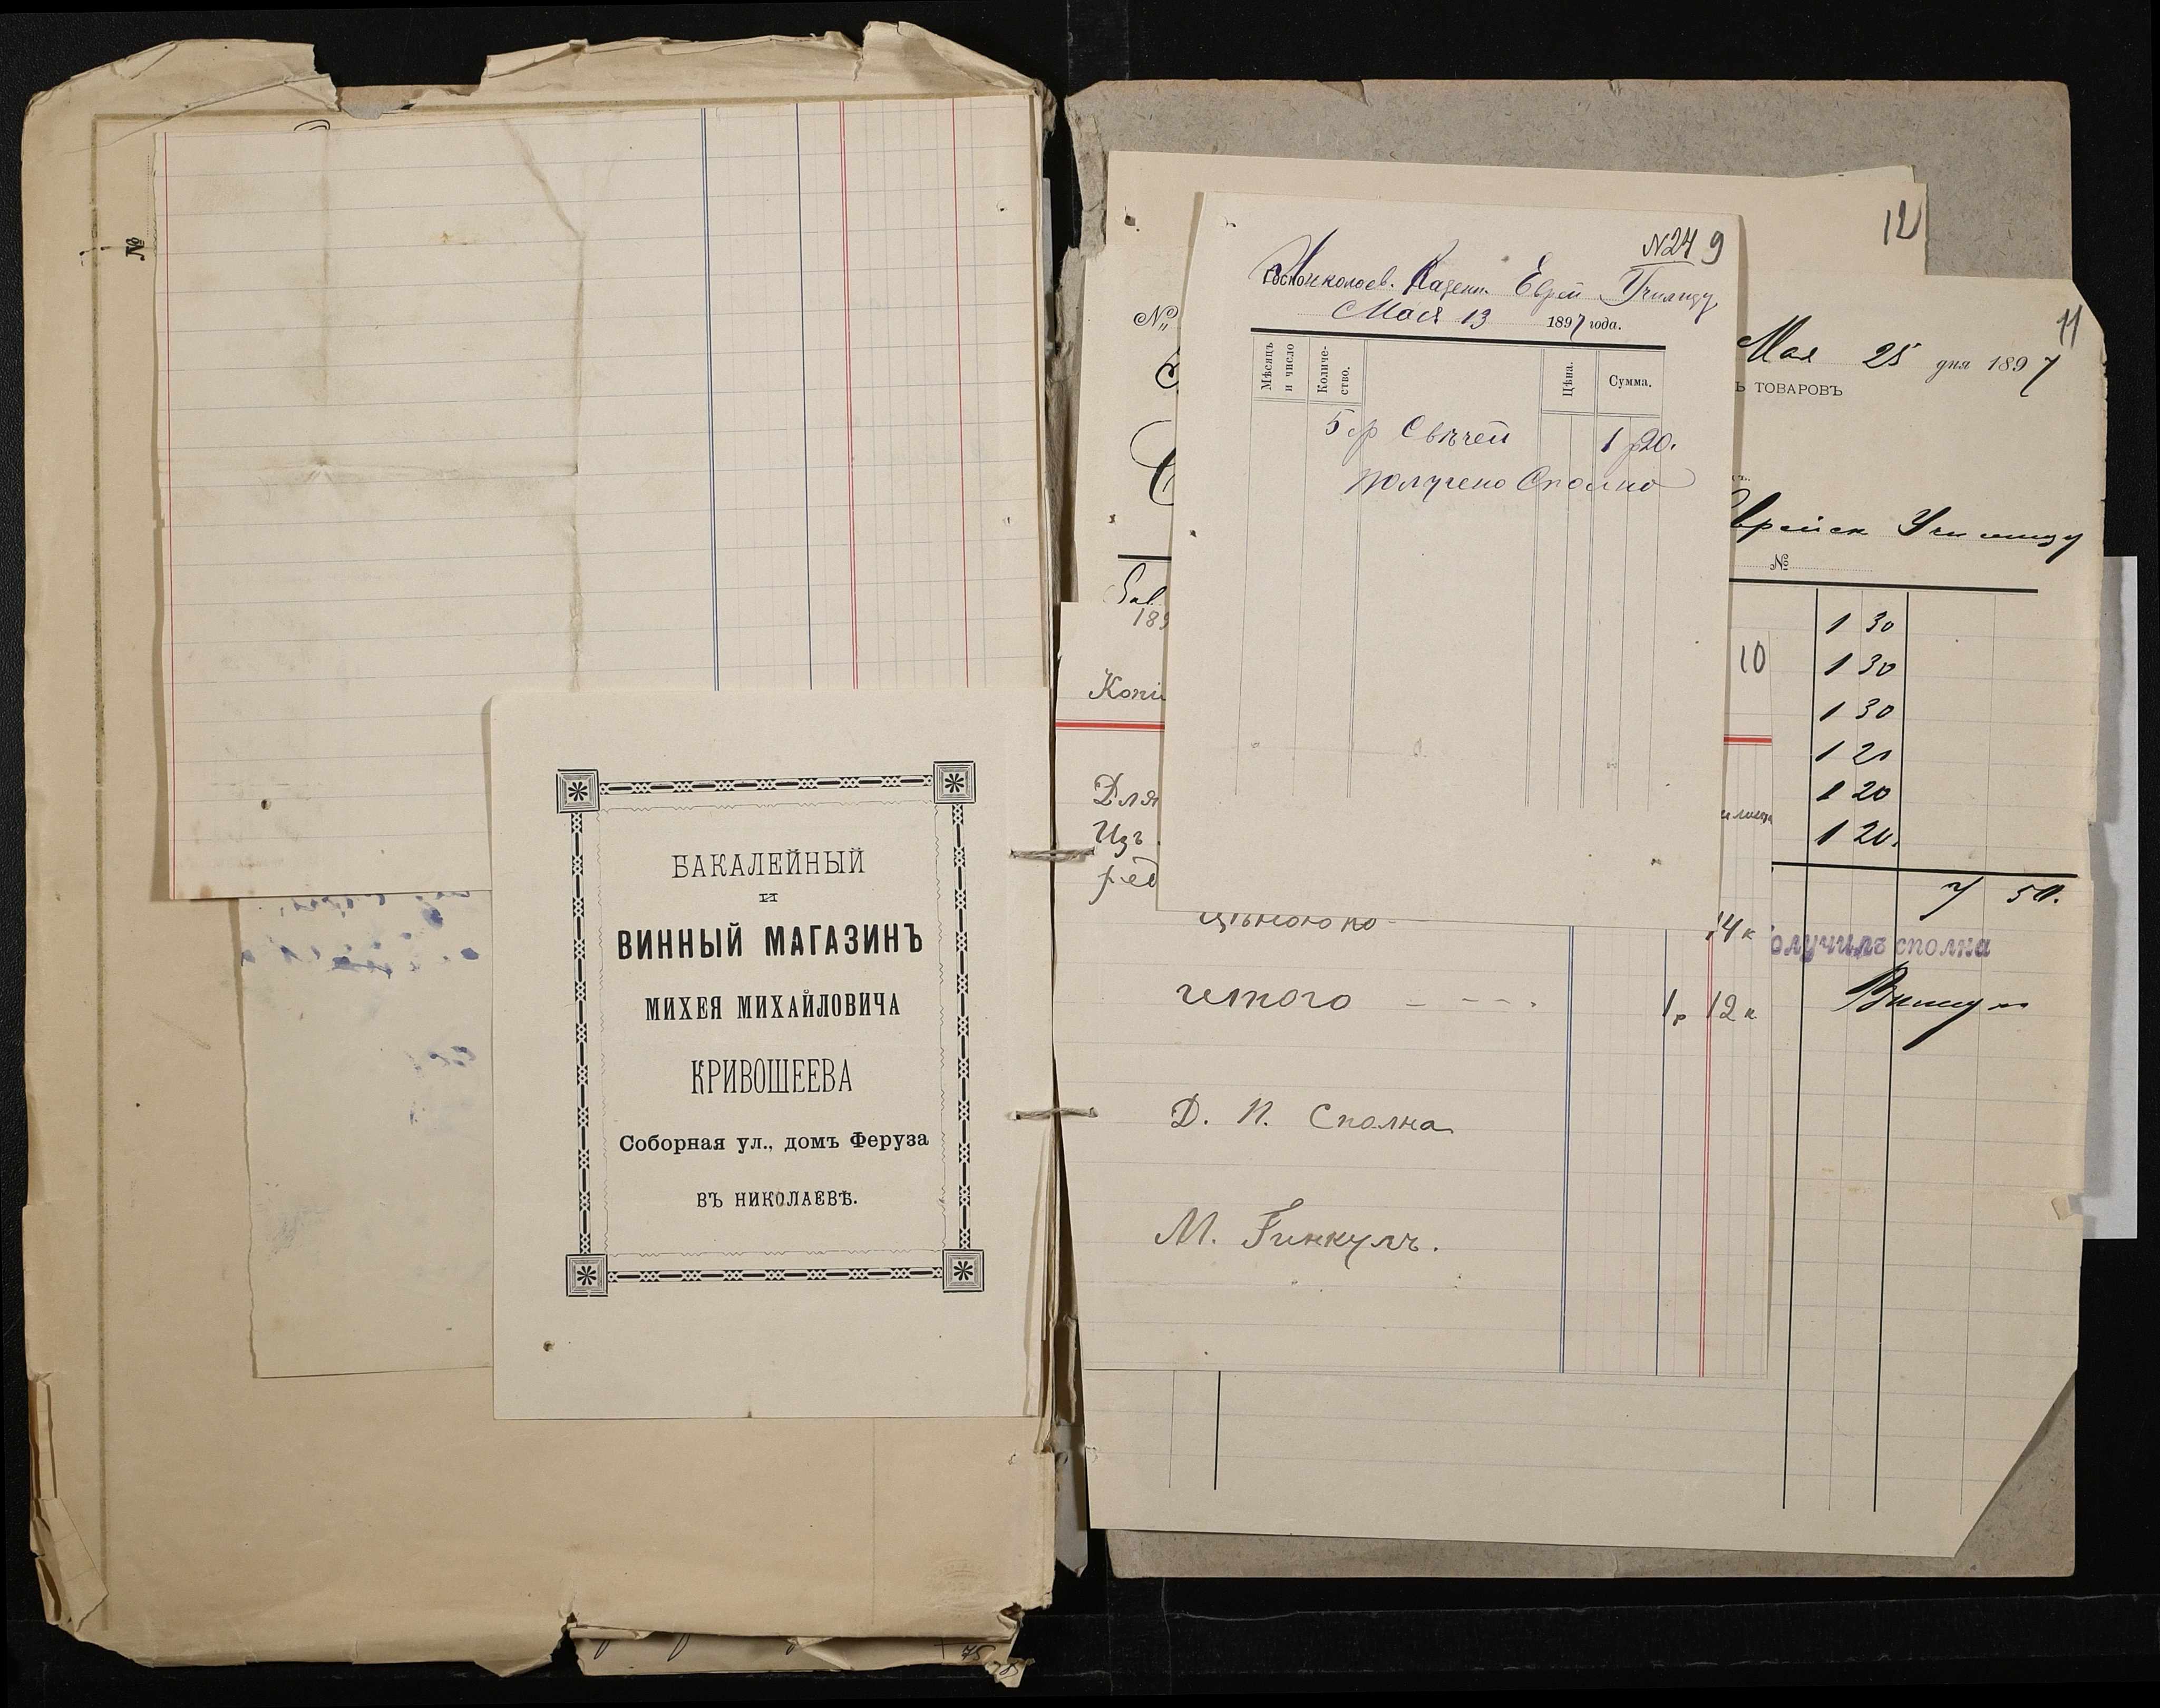 №
БАКАЛЕЙНЫЙ
И
ВИННЫЙ МАГАЗИНЪ
МИХЕЯ МИХАЙЛОВИЧА
КРИВОШЕЕВА
Соборная ул., домъ Феруза
ВЪ НИКОЛАЕВѢ.
75
12
11
N24 9
Николаев. Казенн. Еврей Училищу
Мая 13 1897 года.
Мѣсяцъ и число
Количе-
ство.
Цѣна.
Сумма.
5 ф Свѣчей 1 р 20.
получено Сполно
№
189
Копі
Для
Изъ
ред
10
14 к
четкого 1 р 12 к
Д. П. Сполна
М. Гинкулъ.
Мая 25 дня 1897
Ъ ТОВАРОВЪ
врейск Училищу
№
1 30
1 30
1 30
1 20
1 20
1 20.
7 50.
олучилъ сполна